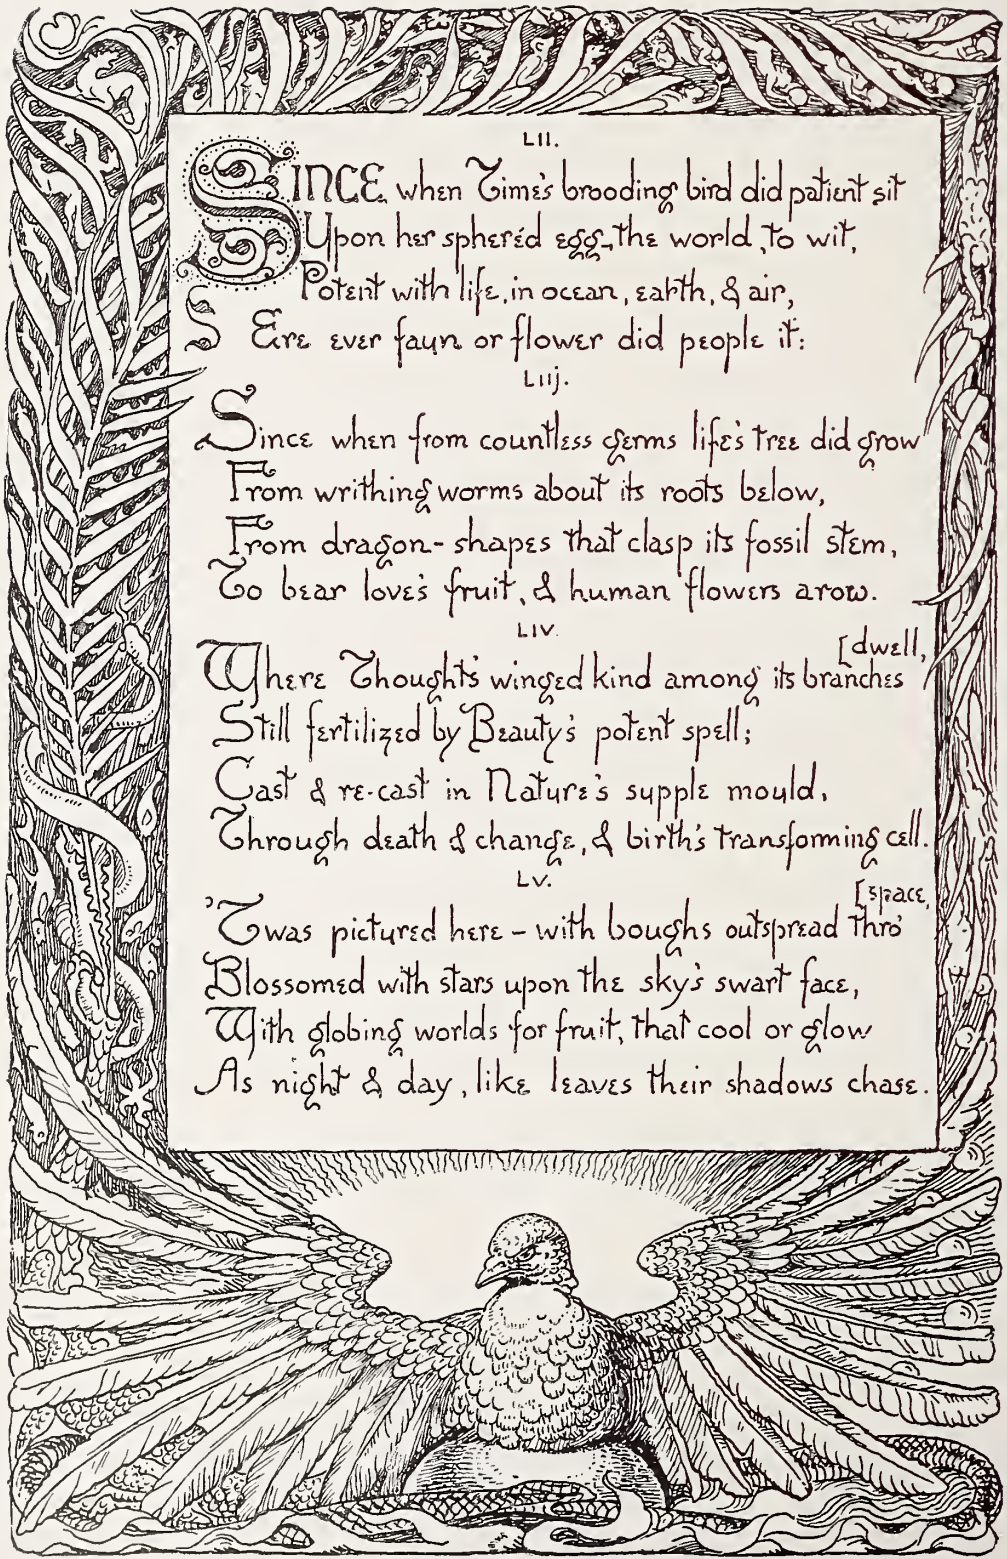 LII.
SINCE when Time's brooding bird did patient sit
Upon her spheréd egg, the world, to wit,
Potent with life, in ocean, earth, & air,
S Ere ever faun or flower did people it:
LIIJ.
Since when from countless germs life's tree did grow
From writhing worms about its roots below,
From dragon-shapes that clasp its fossil stem,
To bear love's fruit, & human flowers arow.
LIV.
Where Thought's winged kind among its branches [dwell,
Still fertilized by Beauty's potent spell;
Cast & re-cast in Nature's supple mould,
Through death & change, & birth's transforming cell.
LV.
'Twas pictured here – with boughs outspread thro' [space,
Blossomed with stars upon the sky's swart face,
With globing worlds for fruit, that cool or glow
As night & day, like leaves their shadows chase.